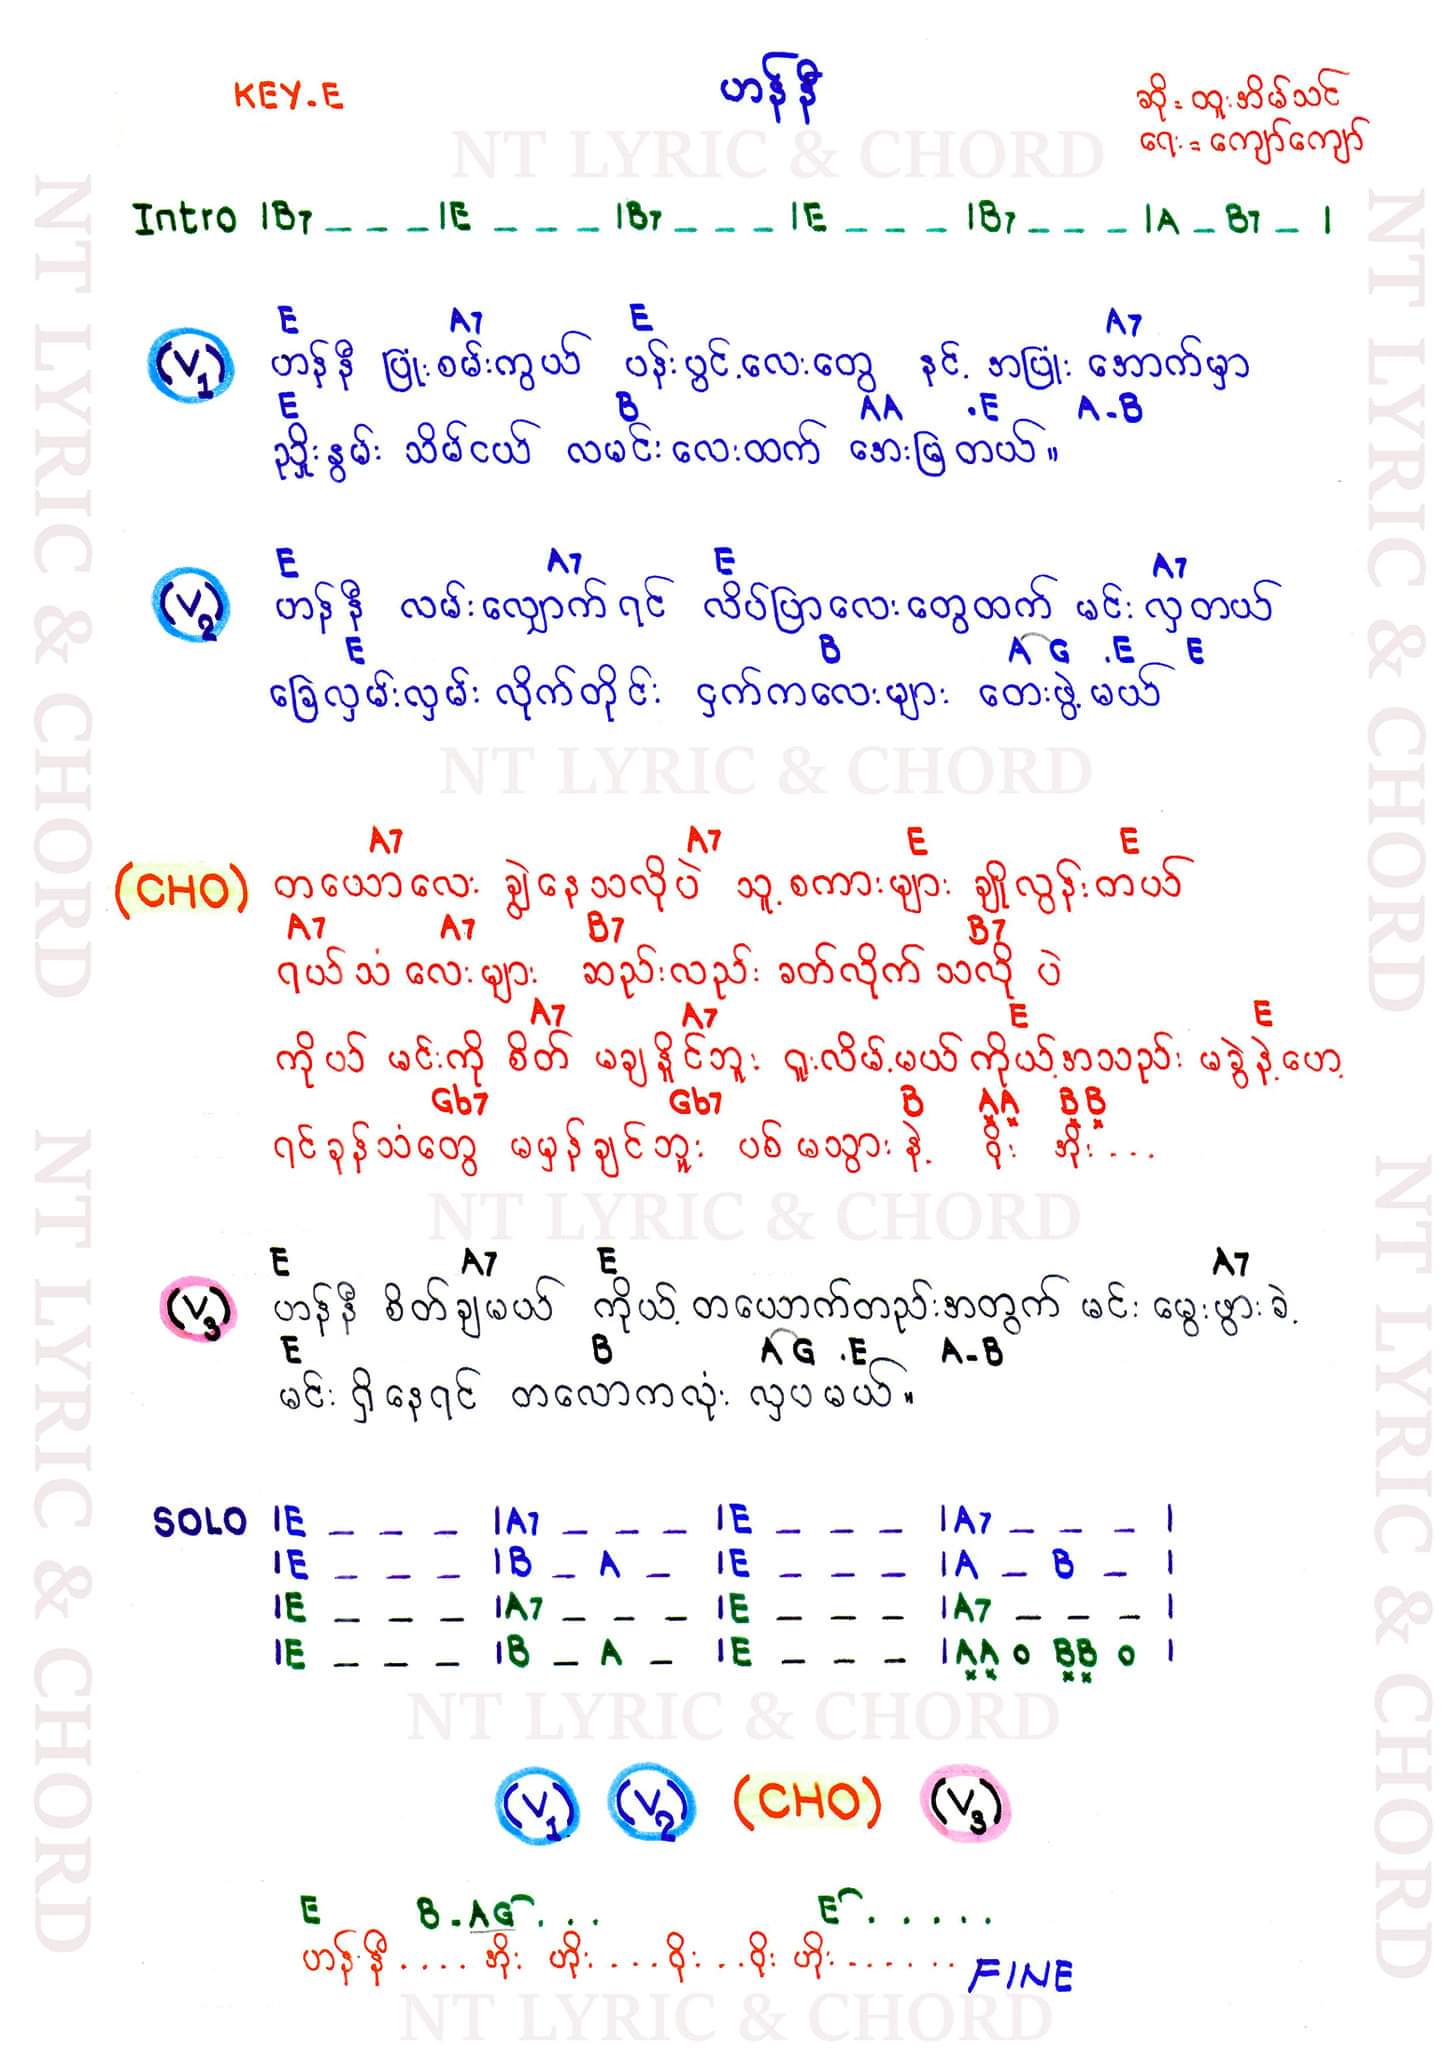 KEY.E
ဟန်နီ
ဆို = ထူးအိမ်သင်
ရေး = ကျော်ကျော်
NT LYRIC & CHORD
Intro |B7 _ _ _ |E _ _ _ |B7 _ _ _ |E _ _ _ |B7 _ _ _ |A _ B7 _ |
E A7 E A7
(V1) ဟန်နီ ပြုံးစမ်းကွယ် ပန်းပွင့်လေးတွေ နင့် အပြုံး အောက်မှာ
E B AA .E A-B
ညှိုးနွမ်း သိမ်ငယ် လမင်းလေးထက် အေးမြတယ်။
E A7 E A7
(V2) ဟန်နီ လမ်းလျှောက်ရင် လိပ်ပြာလေးတွေထက် မင်းလှတယ်
E B A G .E E
ခြေလှမ်းလှမ်းလိုက်တိုင်း ငှက်ကလေးများ တေးဖွဲ့မယ်
NT LYRIC & CHORD
A7 A7 E E
(CHO) တယောလေး ချွဲနေသလိုပဲ သူ့စကားများ ချိုလွန်းတယ်
A7 A7 B7 B7
ရယ်သံလေးများ ဆည်းလည်း ခတ်လိုက်သလို ပဲ
A7 A7 E E
ကိုယ် မင်းကို စိတ် မချနိုင်ဘူး ရူးလိမ့်မယ် ကိုယ့်အသည်း မခွဲနဲ့ဟေ့
Gb7 Gb7 B AA BB
ရင်ခုန်သံတွေ မမှန်ချင်ဘူး ပစ်မသွားနဲ့ ဝိုး အိုး...
NT LYRIC & CHORD
E A7 E A7
(V3) ဟန်နီ စိတ်ချမယ် ကိုယ့်တယောက်တည်းအတွက် မင်း မွေးဖွားခဲ့
E B A G .E A-B
မင်းရှိနေရင် တလောကလုံး လှပမယ်။
SOLO |E _ _ _ |A7 _ _ _ |E _ _ _ |A7 _ _ _ |
|E _ _ _ |B _ A _ |E _ _ _ |A _ B _ |
|E _ _ _ |A7 _ _ _ |E _ _ _ |A7 _ _ _ |
|E _ _ _ |B _ A _ |E _ _ _ |AA o BB o |
NT LYRIC & CHORD
(V1) (V2) (CHO) (V3)
E B-AG... E.....
ဟန်နီ.... အိုး ဟိုး....ဝိုး...ဝိုး ဟိုး.......
FINE
NT LYRIC & CHORD
NT LYRIC & CHORD
NT LYRIC & CHORD
NT LYRIC & CHORD
NT LYRIC & CHORD